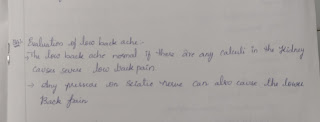 Evaluation of low back ache:-
→ The low back ache normal if there are any calculi in the kidney
causes severe low back pain
→ Any pressure on Sciatic nerve can also cause the lower
Back pain